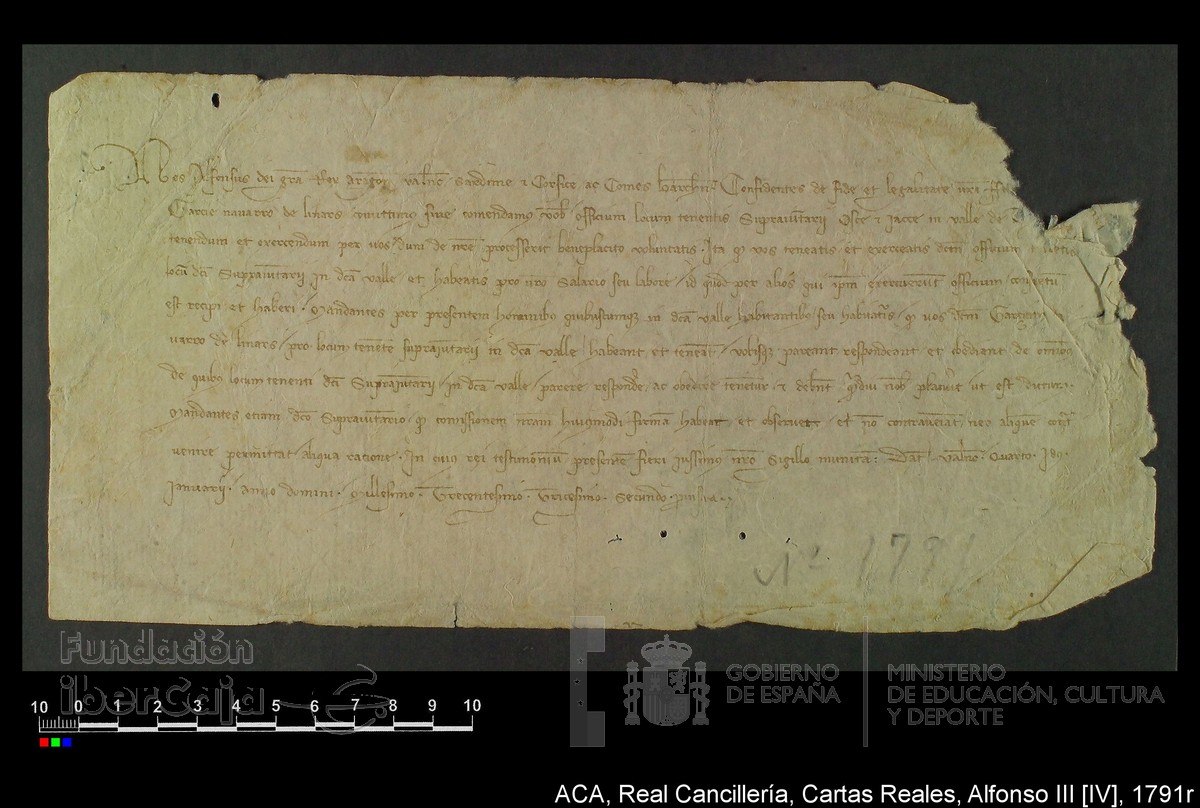 Nos Alfonsus dei gra Rex Aragon Valnc Sardinie & Corsice ac Comes Barchn Confidentes de fide et legalitate
Garcie navarro de linars comittimus sive comendamus vob officium locum tenentis Suprajuntarii Osce & Jacce in valle de
tenendum et exercendum per vos dum de nre processerit beneplacito voluntatis Ita qd vos teneatis et exerceatis dcm officium
locu dci Suprajuntarii in dca valle et habeatis pro vro Salario seu labore id quod per alios qui ipm exercuerunt officium consuetu
est recipi et haberi Mandantes per presentem hominibus quibuscumque in dca valle habitantibus seu habitaturis qd vos dcm Garciam
varro de linars pro locum tenente suprajuntarii in dca valle habeant et teneant vobisque pareant respondeant et obediant de omnibus
de quibus locum tenenti dci Suprajuntarii in dca valle parere respondere ac obedire tenentur & debent quamdiu nob placuerit ut est dictum
Mandantes etiam dco Suprajuntario qd comissionem nram huiusmodi firmam habeat et observet et no contraveniat nec aliquem contra
venire permittat aliqua ratione In cuius rei testimonium presentem fieri jussimus nro Sigillo munitam Dat Valnc Quarto Idus
Januarii Anno domini Millesimo Trecentesimo Tricesimo Secundo
Nº 1791
Fundación
iberCaja
GOBIERNO
DE ESPAÑA
MINISTERIO
DE EDUCACIÓN, CULTURA
Y DEPORTE
10 0 1 2 3 4 5 6 7 8 9 10
ACA, Real Cancillería, Cartas Reales, Alfonso III [IV], 1791r